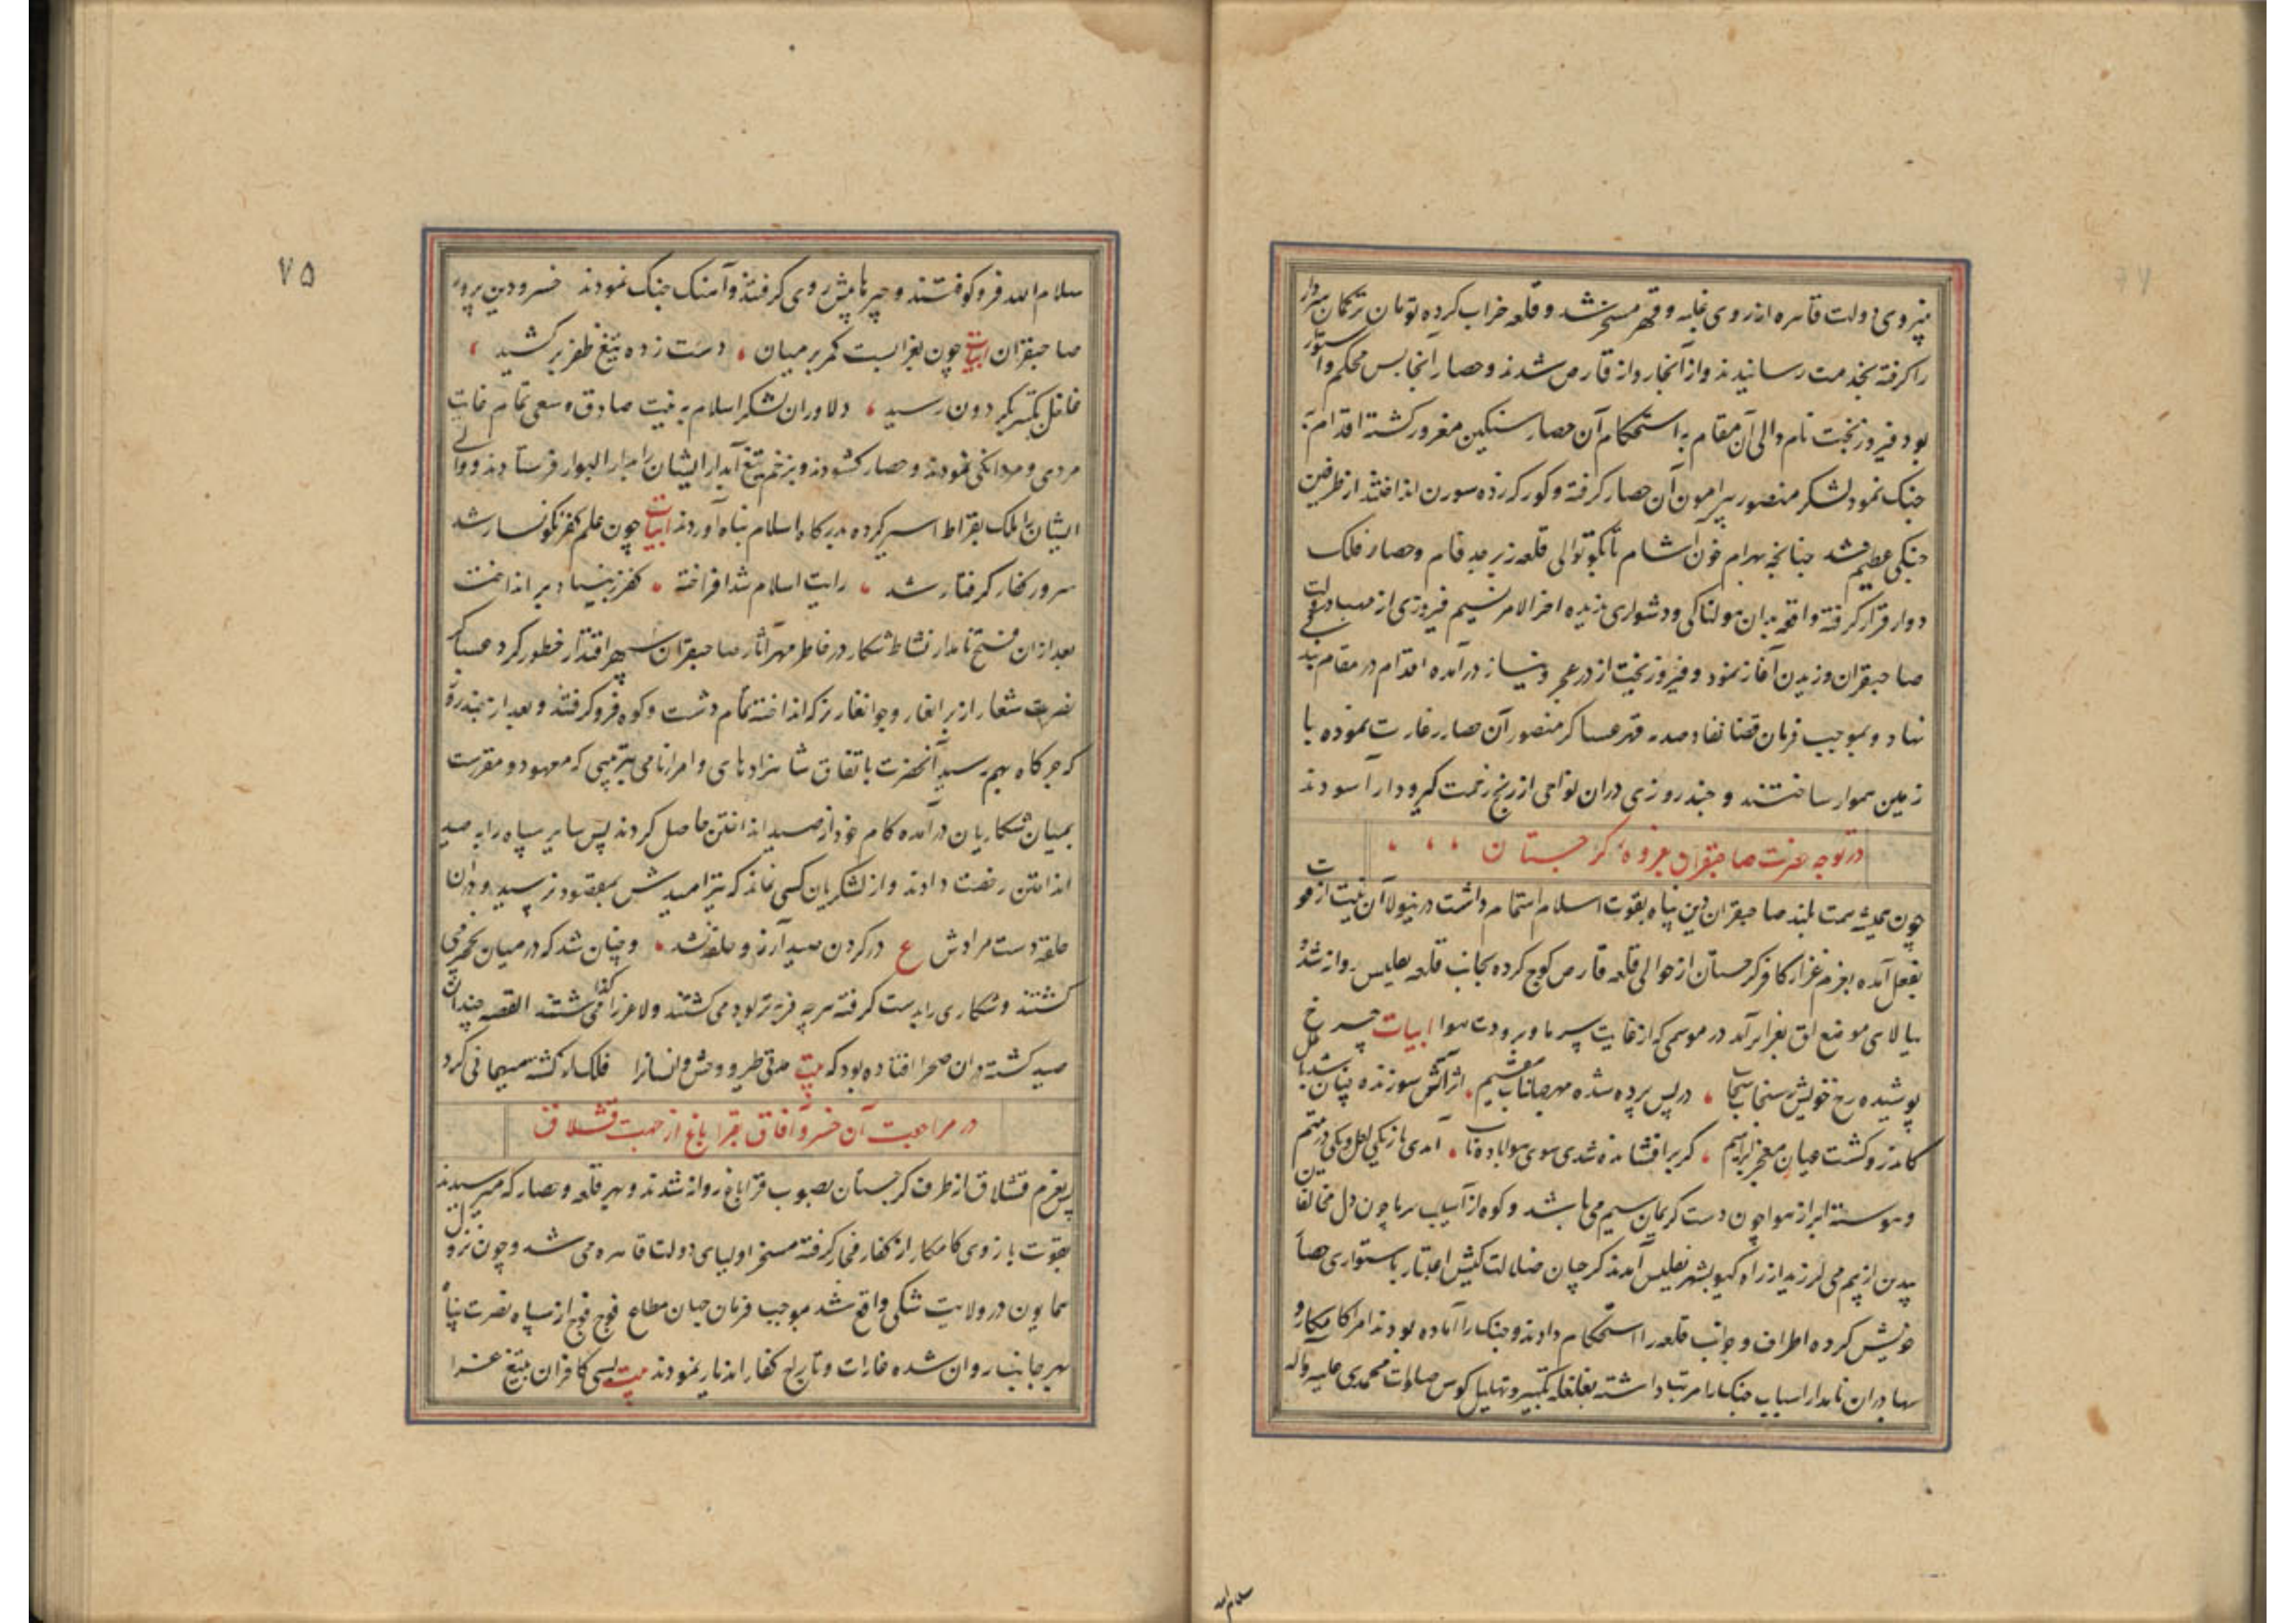 پیروی دولت قاهره از روی غلبه و قهر مسخر شد و قلعه خراب کرده تومان ترکمان سردار
را گرفته بخدمت رسانیدند و از آنجا روانه قارص شدند و حصار آنجا بس محکم و استوار
بود فیروزبخت نام والی آن مقام به استحکام آن حصار سنگین مغرور گشته اقدام به
جنک نمود لشکر منصور پیرامون آن حصار گرفته و کورکه زده سورن انداختند از طرفین
جنگی عظیم شد چنانچه بهرام خون آشام تا بکوتوالی قلعه زبرجد فام و حصار فلک
دوار قرار گرفته واقعه بدان هولناکی و دشواری ندیده اخر الامر نسیم فیروزی از مهب دولت
صاحبقران وزیدن آغاز نمود و فیروزبخت از در عجز و نیاز درآمده اقدام در مقام بندگی
نهاد و بموجب فرمان قضا نفاذ صدمه قهر عساکر منصور آن حصار غارت نموده با
زمین هموار ساختند و چند روزی دران نواحی از رنج زحمت گیرودار آسودند
در توجه حضرت صاحبقران بغزوه گرجستان
چون همیشه همت بلند صاحبقران دین پناه بقوت اسلام اهتمام داشت درینولا آن نیت از قوت
بفعل آمده بعزم غزا کافر گرجستان از حوالی قلعه قارص کوچ کرده بجانب قلعه تفلیس روانه شد و
ببالای موضع اق بغرا برآمد در موسمی که از غایت سرما و برودت هوا ابیات چرخ
پوشیده رخ خویش بسنجاب سحاب در پس پرده شده مهر جهانتاب مقیم اثر آتش سوزنده چنان شد بمثل
کاندرو گشت عیان معجز ابراهیم گر برافشانده شدی سوی هوا باده ناب آمدی باز یکی لعل و یکی در یتیم
و پیوسته ابر از هوا چون دست کریمان سیم می پاشید و کوه از آسیب سرما چون دل مخالفان
بیدین از بیم می لرزید از راه کهو بشهر تفلیس آمدند گرجیان ضلالت کیش اعتبار باستواری حصار
خویش کرده اطراف و جوانب قلعه را استحکام دادند و جنک را آماده بودند امراء کامکار و
بهادران نامدار اسباب جنک را مرتب داشته بغلغله تکبیر و تهلیل کوس صلوات محمدی علیه و آله
سلام الله
۷۵
سلام الله فرو کوفتند و چپرها پیش روی گرفتند و آهنک جنک نمودند خسرو دین پرور
صاحبقران ابیات چون بغزا بست کمر بر میان دست زده تیغ ظفر برکشید
غلغل تکبیر بگردون رسید دلاوران لشکر اسلام به نیت صادق و سعی تمام غایت
مردی و مردانگی نمودند و حصار گشودند و بزخم تیغ آبدار ایشان را بدار البوار فرستادند و والی
ایشان را ملک بقراط اسیر کرده بدرگاه اسلام پناه آوردند ابیات چون علم کفر نگونسار شد
سرور کفار گرفتار شد رایت اسلام شد افراخته کفر ز بنیاد برانداخت
بعد از ان فتح نامدار نشاط شکار در خاطر مهر آثار صاحبقران سپهر اقتدار خطور کرد عساکر
نصرت شعار از برانغار و جوانغار نرکه انداخته تمام دشت و کوه فرو گرفتند و بعد از چند روز
که جرگاه بهم رسید آنحضرت باتفاق شاهزادهای و امراء نامی بترتیبی که معهود و مقررست
بمیان شکاریان درآمده کام خود از صید انداختن حاصل کردند پس سایر سپاه را به صید
انداختن رخصت دادند و از لشکریان کسی نماند که تیر امیدش بمقصود نرسید و دران
حلقه دست مرادش ع در گردن صید آرزو حلقه نشد و چنان شد که در میان نخجیر می
گشتند و شکاری را بدست گرفته هرچه فربه تر بود می کشتند و لاغر را می گذاشتند القصه چندان
صید کشته دران صحرا افتاده بود که بیت مدتی طیر و وحش و انسانرا فلک از کشته میهمانی کرد
در مراجعت آن خسرو آفاق بقراباغ از جهت قشلاق
پس بعزم قشلاق از طرف گرجستان بصوب قراباغ روانه شدند و بهر قلعه و حصار که میرسیدند
بقوت بازوی کامکار از کفار فجار گرفته مسخر اولیای دولت قاهره می شد و چون نزول
همایون در ولایت شکی واقع شد بموجب فرمان جهان مطاع فوج فوج از سپاه نصرت پناه
بهر جانب روان شده غارات و تاراج کفار اندیار نمودند بیت بسی کافران بتیغ غزا